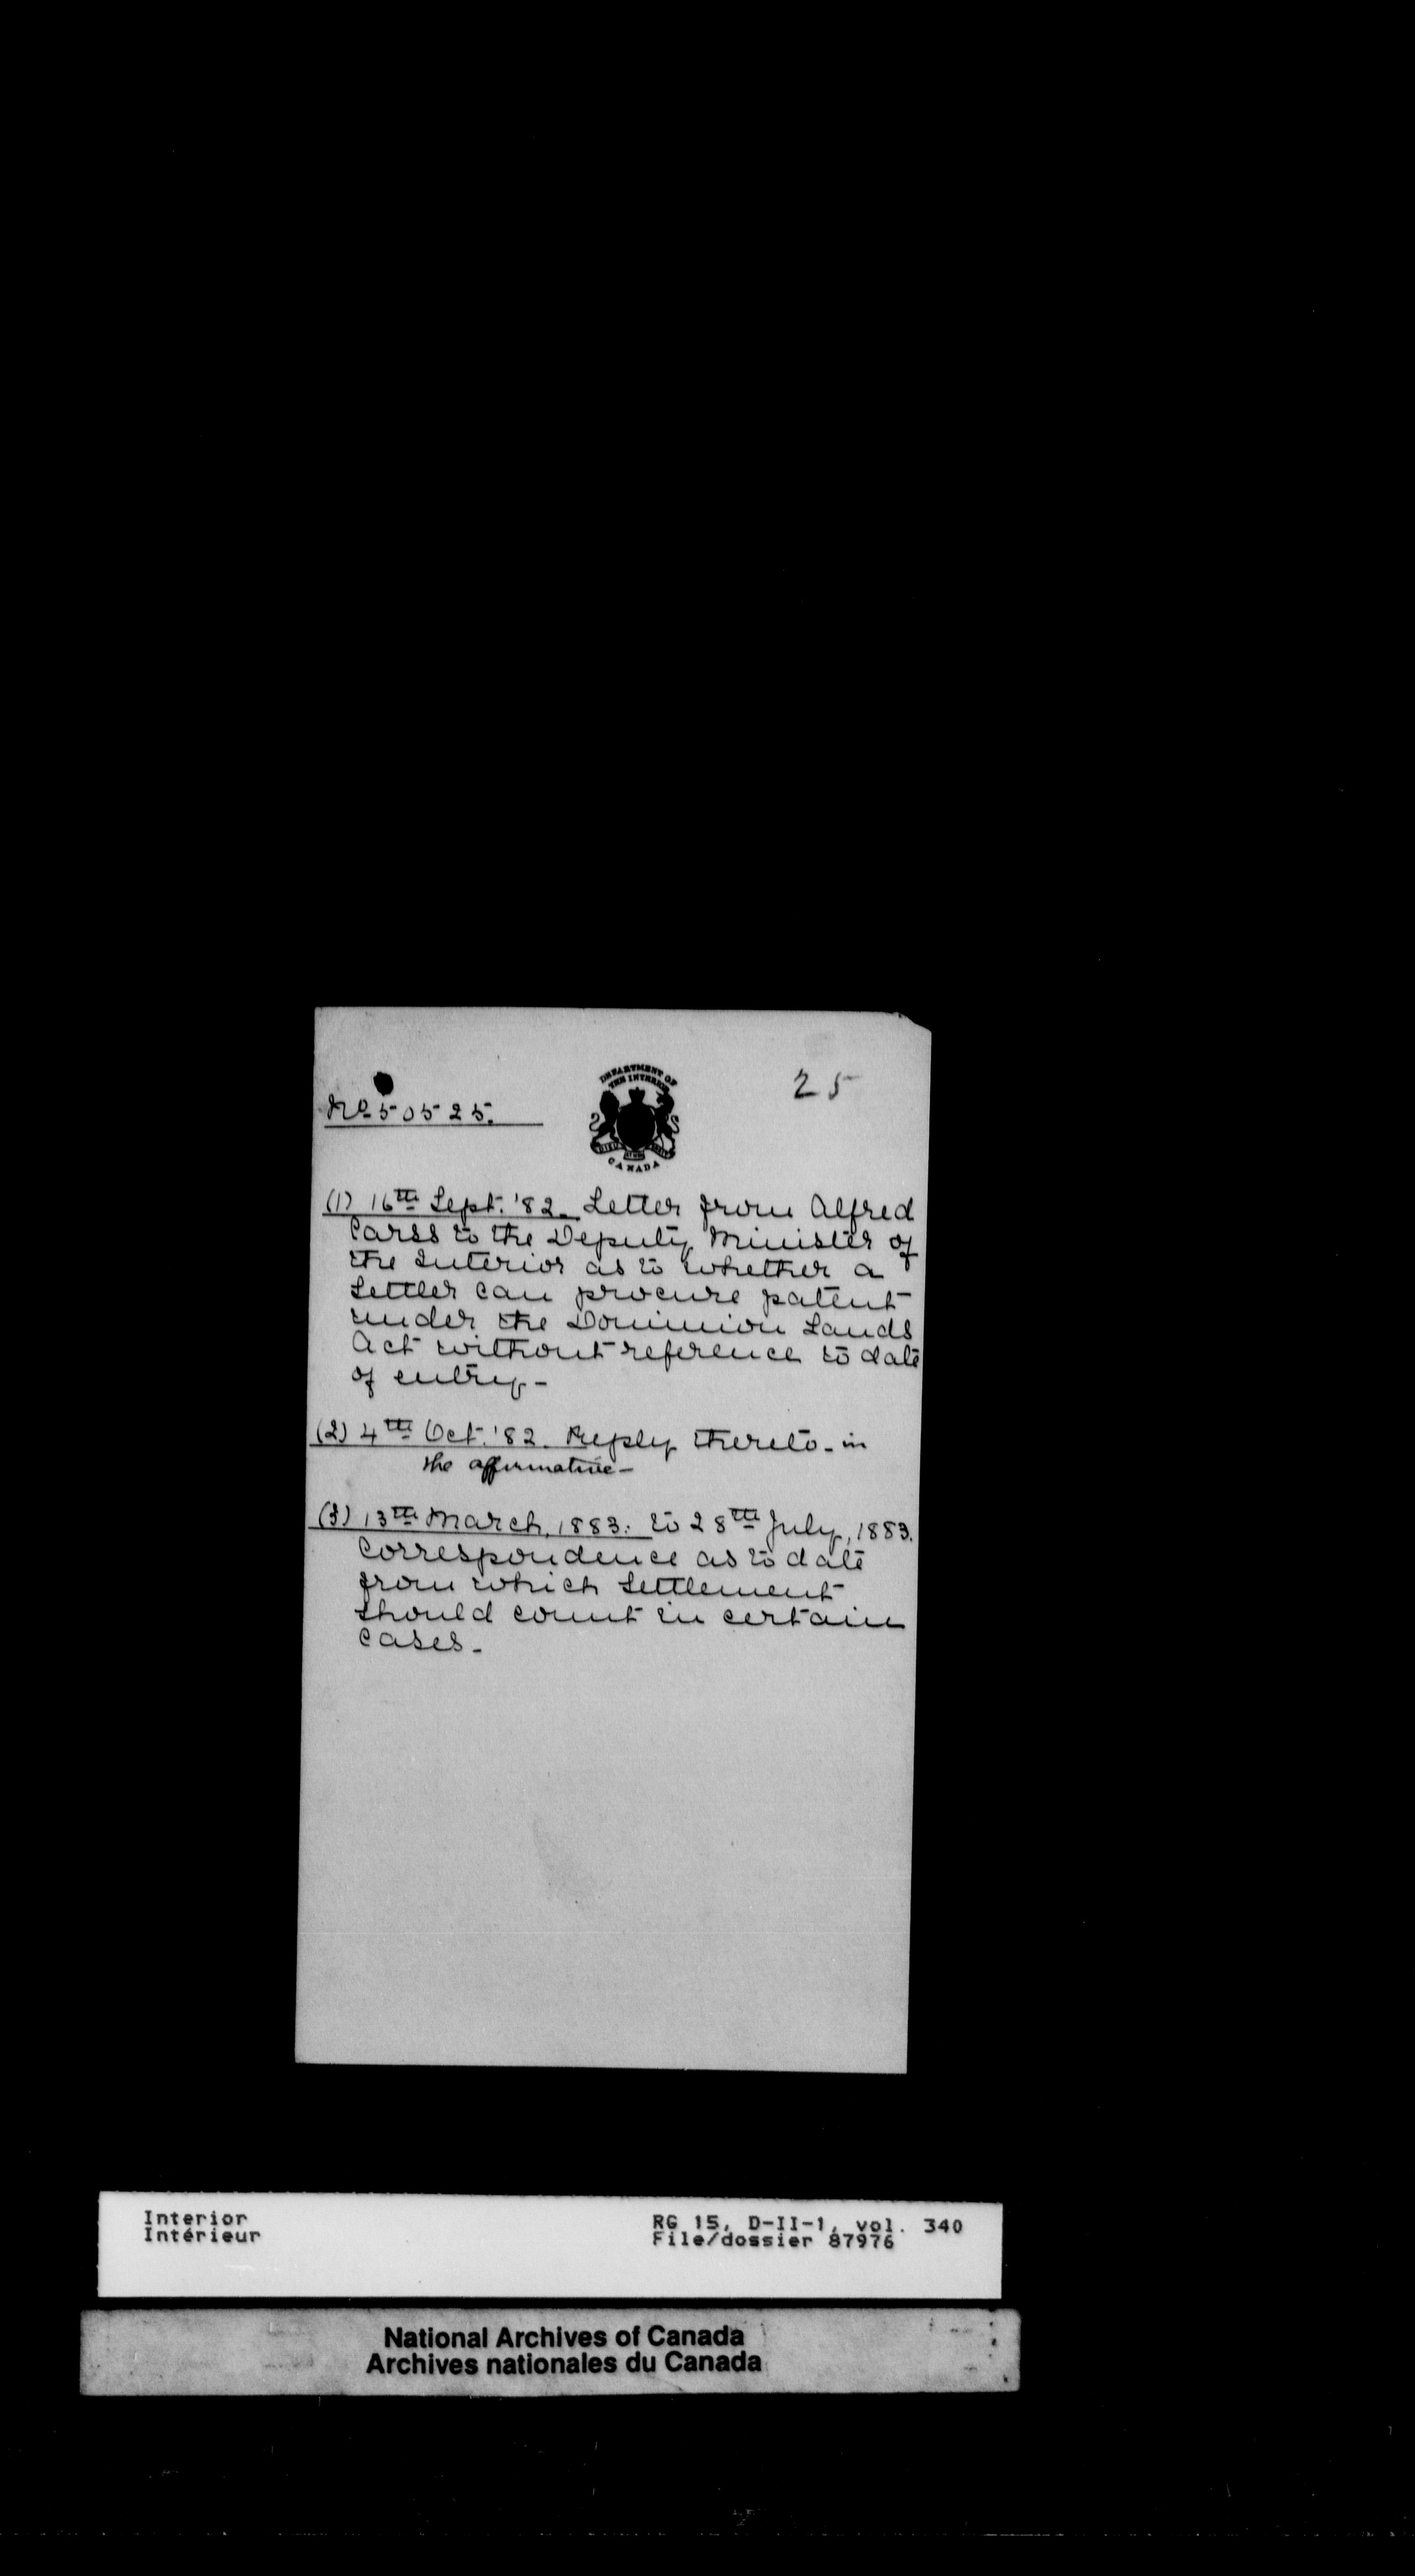 25
DEPARTMENT OF
THE INTERIOR
CANADA
No. 50525.
(1) 16th Sept. '82. Letter from Alfred
Carss to the Deputy Minister of
the Interior as to whether a
Settler can procure patent
under the Dominion Lands
Act without reference to date
of entry-
(2) 4th Oct. '82. Reply thereto- in
the affirmative-
(3) 13th March, 1883. to 28th July, 1883.
Correspondence as to date
from which Settlement
should count in certain
cases-
Interior
Intérieur
RG 15, D-II-1, vol. 340
File/dossier 87976
National Archives of Canada
Archives nationales du Canada